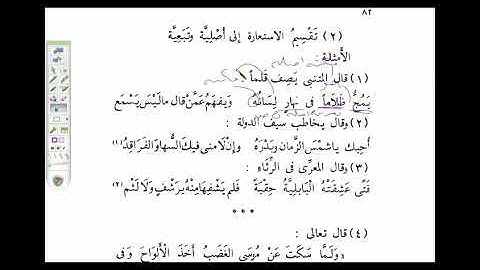 ٨٢
(٢) تَقْسِيمُ الاستعارة إلى أَصْلِيَّة وتَبَعِيَّة
الأمثلة
(١) قال المتنبى يَصِف قلماً
يَمُجُّ ظَلَاماً فى نهارٍ لِسَانُهُ وَيَفْهَمُ عَمَّنْ قال ما لَيْسَ يَسْمَعُ
(٢) وقال يخاطب سيف الدولة :
أُحِبُّك يا شَمْسَ الزَّمان وبَدْرَهُ وإنْ لَامنى فيك السُّها والفَرَاقِدُ (١)
(٣) وقال المعرِّى فى الرِّثاء :
فَتًى عَشِقَتْهُ الْبَابِلِيَّةُ حِقْبَةً فلم يَشْفِهَا مِنْهُ بِرَشْفٍ وَلَا لَثْمِ (٢)
* * *
(٤) قال تعالى :
« وَلَمَّا سَكَتَ عَنْ مُوسَى الْغَضَبُ أَخَذَ الْأَلْوَاحَ وَفِى